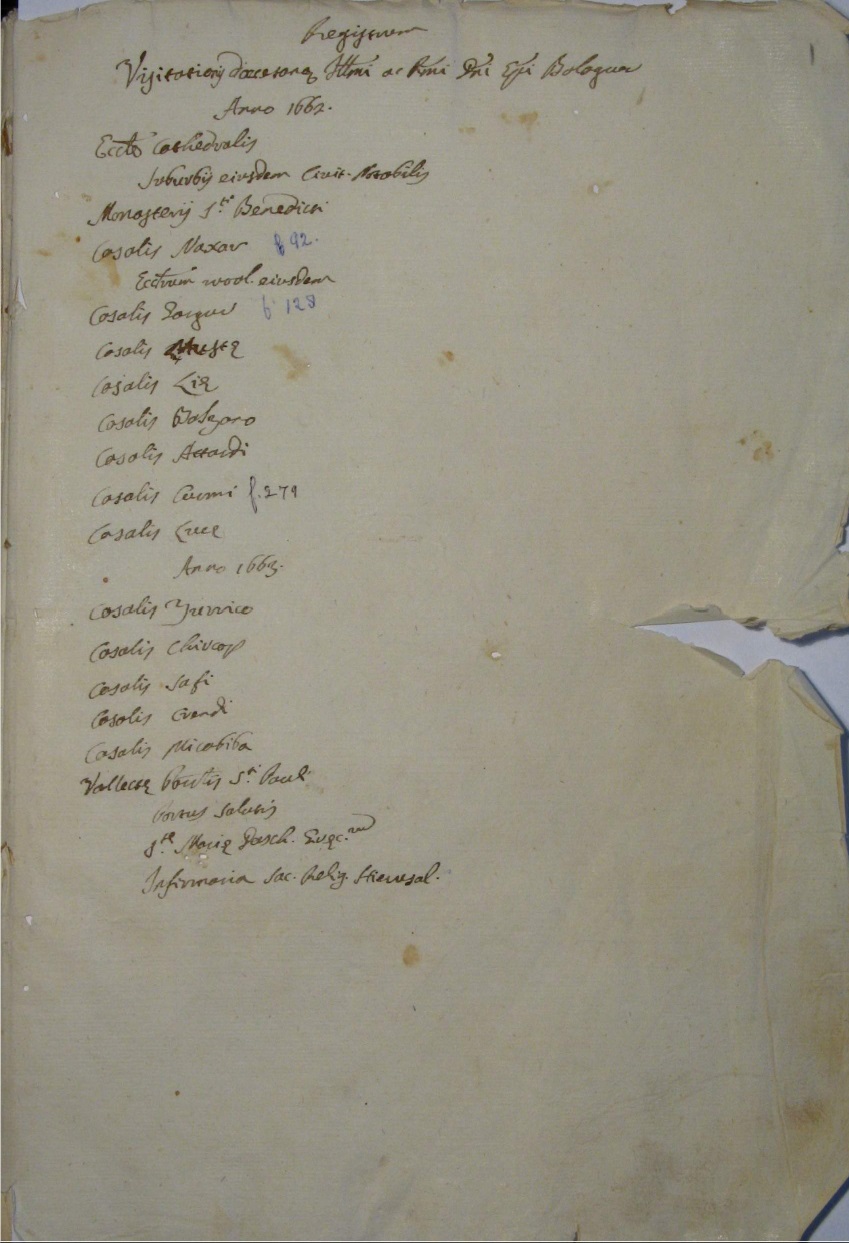 Registrum
Visitationis diocesanę Illmi ac Rmi Dni Epi Balaguer
Anno 1662.
Eccłę Cathedralis
Suburbij eiusdem Civit. Notabilis
Monasterij Sti Benedicti
Casalis Naxar f 92.
Ecclrum rural. eiusdem
Casalis Gargur f 128
Casalis Mustę
Casalis Lię
Casalis Balzano
Casalis Attardi
Casalis Curmi f. 279
Casalis Lucę
Anno 1663.
Casalis Zurrico
Casalis Chircop
Casalis Safi
Casalis Crendi
Casalis Micabiba
Vallettę Portus Sti Pauli
Portus Salutis
Stę Marię Dasch.
Infirmaria Sac. Relig. Hierosol.